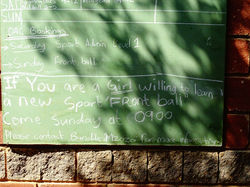 SAT
SUN
OAC Bookings
→ Saturday Sport Admin Level 1
→ Sunday Front ball
If You are a Girl willing to learn
a new Sport FRont ball
Come Sunday at 0900
Please contact for more info